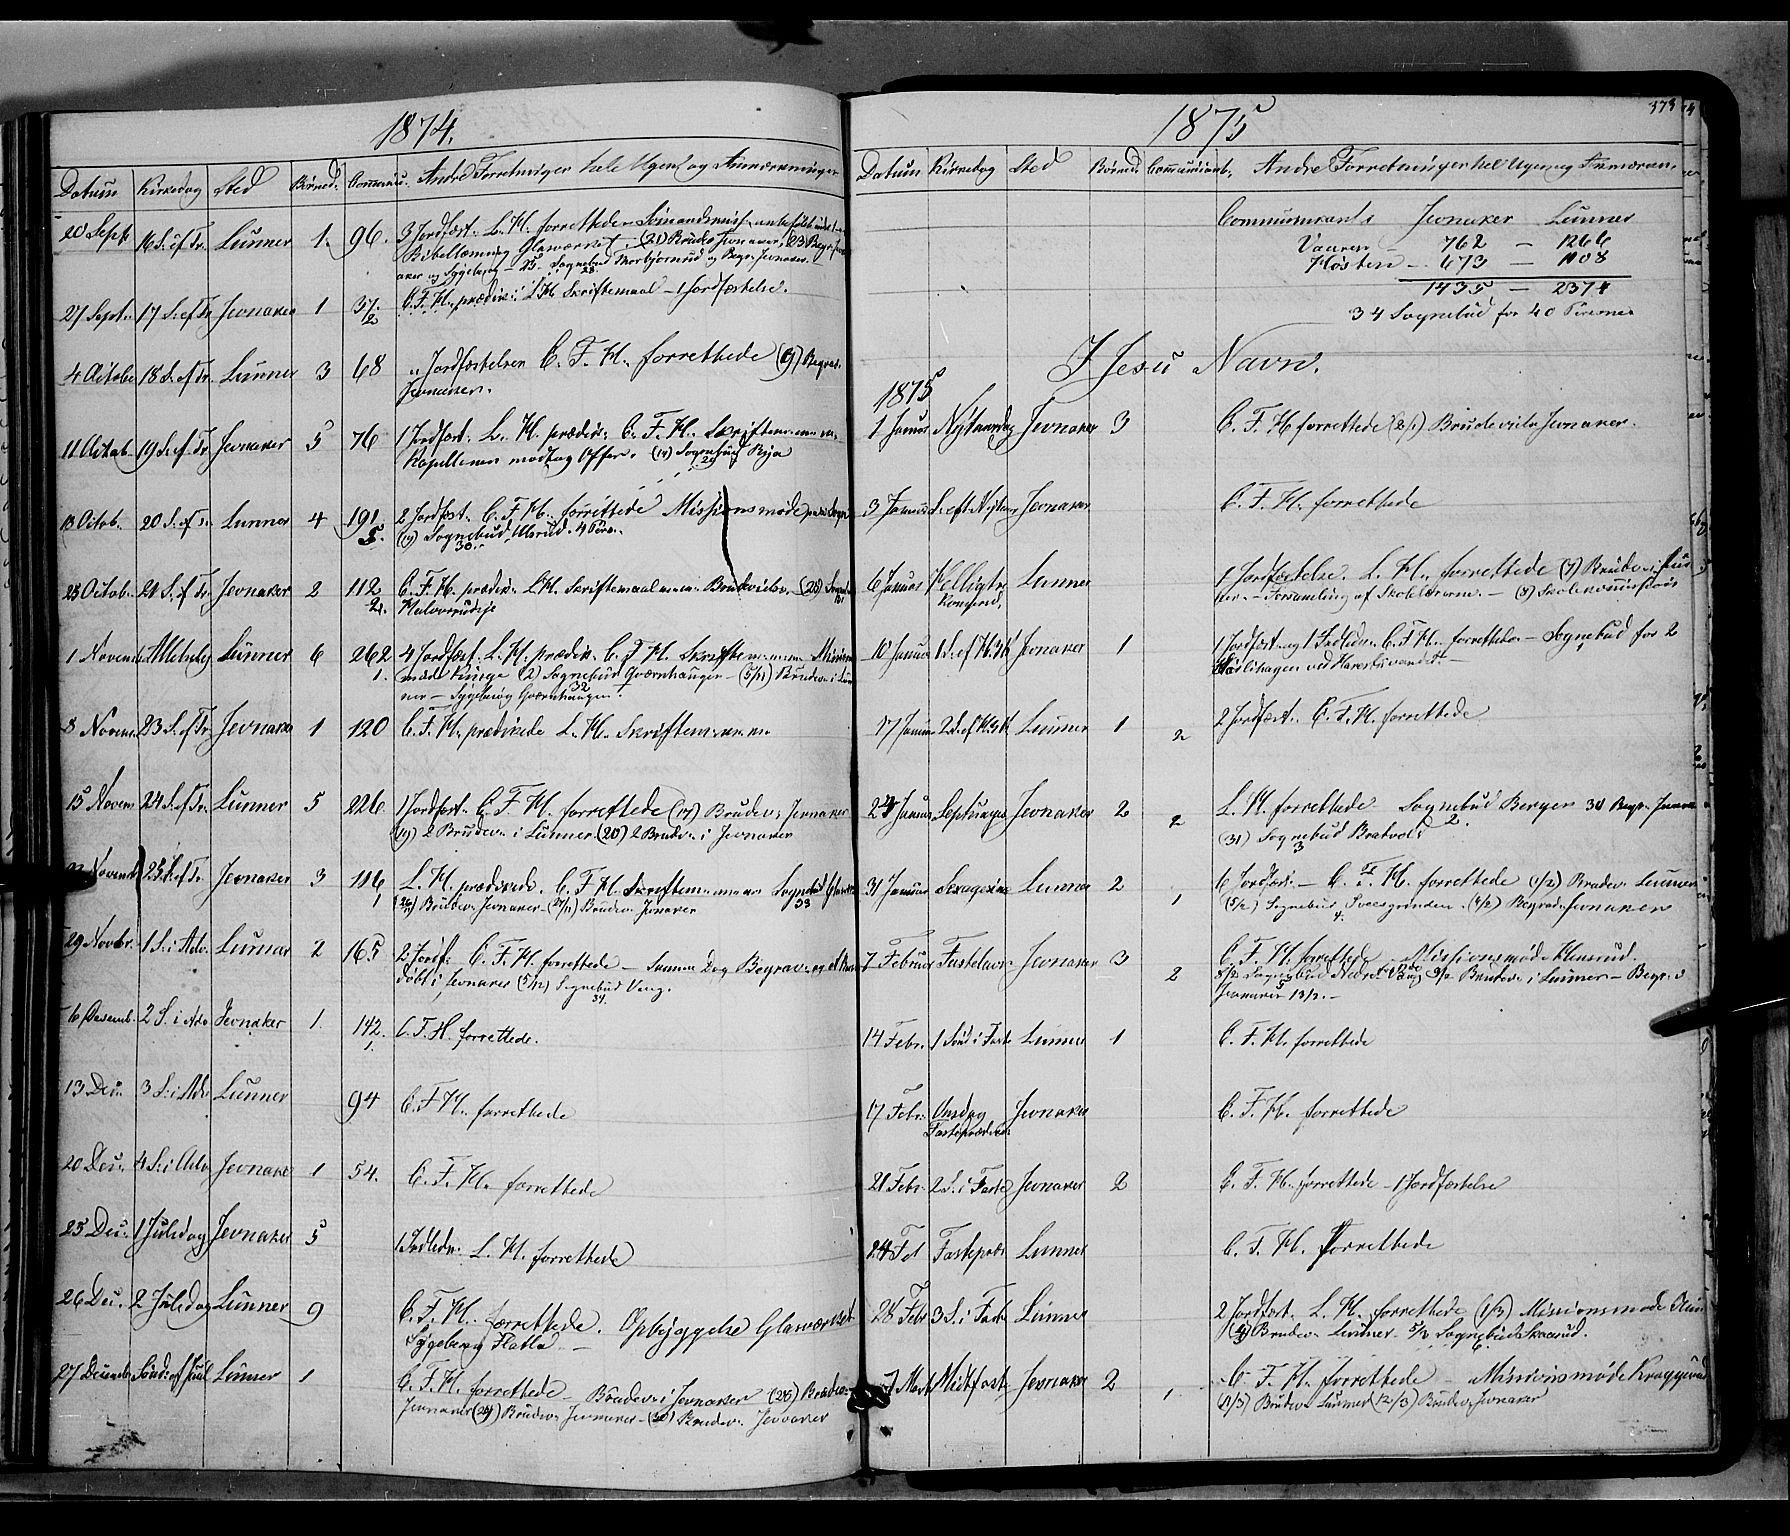 1874.
Datum Kirkedag Sted Børned. Communi. Andre Forretninger hele Ugen og Anmærkninger
20 Septr 16 S. ef Tr. Lunner 1. 96. 3 Jordfæst. L. H. forrettede
Bibellæsning Glasværket. (21) Brudev. Jevnaker, 23 Begr. Jevn
aker og Sygebesøg - 25. Sognebud og Begr. Jevnaker.
28
27 Septr. 17 S. ef Tr. Jevnaker 1 37. C. F. H. prædik: L. H. Skriftemaal - 1 Jordfæstelse.
2
4 Octobr 18 S. ef Tr. Lunner 3 68 " Jordfæstelser C. F. H. forrettede (9) Begrav.
Jevnaker.
11 Octob. 19 S. ef Tr. Jevnaker 5 76 1 Jordfæst. L. H. prædik. C. F. H. Skriftem
Kapellanen modtog Offer. (14) Sognebud Rya
29
18 Octob. 20 S. ef Tr. Lunner 4 191. 2 Jordfæst. C. F. H. forrettede Missionsmøde
5. (19) Sognebud Ulsrud. 4 Pers.
30.
25 Octob. 21 S. ef Tr. Jevnaker 2 112 C. F. H. prædik. L. H. Skriftemaal Brudevielse. (28)
2. Halvorrudeje
1 Novemb Allehelg Lunner 6 262 4 Jordfæst. L. H. prædik. C. F. H. Skriftem
1. møde (2) Sognebud Qværnhaugen - (5/11) Brudev. i Lun
32
ner - Sygebesøg Qværnhaugen.
8 Novem 23 S. ef Tr. Jevnaker 1 120 C. F. H. prædikede L. H. Skriftem
15 Novem 24 S. ef Tr. Lunner 5 226 1 Jordfæst. C. F. H. forrettede (17) Brudev. Jevnaker
(19) 2 Brudev. i Lunner (20) 2 Brudev. i Jevnaker
Novemb 25 S. ef Tr. Jevnaker 3 116 L. H. prædikede. C. F. H. Skriftem Sognebud
1 (26/11) Brudev. Jevnaker - (27/11) Brudev. Jevnaker 33
29 Novbr. 1 S. i Adv. Lunner 2 165 2 Jordf. C. F. H. forrettede - Samme Dag Begrav. og et Barn
døbt i Jevnaker (5/12) Sognebud Vang.
34.
6 Decemb. 2 S. i Adv Jevnaker 1. 142 C. F. H. forrettede.
1.
13 Dec. 3 S. i Adv Lunner 94 C. F. H. forrettede
20 Dec. 4 S. i Adv Jevnaker 1 54. C. F. H. forrettede
25 Dec. 1 Juledag Jevnaker 5 1 Indledn. L. H. forrettede
26 Dec. 2 Juledag Lunner 9 C. F. H. forrettede. Opbyggelse Glasværket
Sygebesøg Flatla -
27 Decemb Sönd. ef Jul Lunner 1 C. F. H. forrettede - Brudev. i Jevnaker (28) Brudev.
Jevnaker (29) Brudev. Jevnaker - (30) Brudev. Jevnaker
1875
373
Datum Kirkedag Sted Børned. Communicant. Andre Forretninger hel Ugen og Anmærkn.
Communicants Jevnaker Lunner
Vaaren - 762 - 1266
Høsten - 673 - 1108
1435 - 2374
34 Sognebud for 40 Personer
I Jesu Navn.
1875
1 Januar Nytaarsdag Jevnaker 3 C. F. H. forrettede (2/1) Brudevielse Jevnaker.
3 Januar S. eft Nytaar Jevnaker C. F. H. forrettede
6 Januar Helligtre Lunner 1 Jordfæstelse. L. H. forrettede (7) Brudev. i Lun
Konferd. ner. - Forsamling af Skolelærerne. - (8) Skolecommission
10 Januar 1 S. ef H. 3 K Jevnaker 1 1 Jordfæst. og 1 Indledn. C. F. H. forrettede - Sognebud for 2
ved Harestuvandet. -
17 Januar 2 S. ef H. 3 K Lunner 1 2 2 Jordfæst. C. F. H. forrettede
24 Januar Septuages Jevnaker 2 2 L. H. forrettede Sognebud Bergen 30 Begr. Jevnak
2.
(31) Sognebud Bratvold
3
31 Januar Sexagesima Lunner 2 1 6 Jordfæst. - C. F. H. forrettede (1/2) Brudev. Lunner
(5/2) Sognebud Sveesgrinden. (4/2) Begrav. Jevnaker
4.
7 Februar Fastelavn Jevnaker 3 2 C. F. H. forrettede - Missionsmøde Klensrud.
8/2 Sognebud Nedre Vang 9/2 Brudev. i Lunner - Begr. i
Jevnaker 13/2. -
14 Febr. 1 Sönd i Fast Lunner 1 C. F. H. forrettede
17 Febr. Onsdag Jevnaker C. F. H. forrettede
Fasteprædiken
21 Febr. 2 S. i Faste Jevnaker 2 C. F. H. forrettede - 1 Jordfæstelse
24 Feb Fastepræd Lunner C. F. H. forrettede
28 Febr 3 S. i Fast Lunner 2 Jordfæst. L. H. forrettede (1/3) Missionsmøde
(4) Brudev. Lunner 5/3 Sognebud Skaarud.
6.
7 Mart Midtfaste Jevnaker 2 1 C. F. H. forrettede - Missionsmøde Kraggerud
(11/3) Brudev. Lunner (12/3) Brudev. Jevnaker